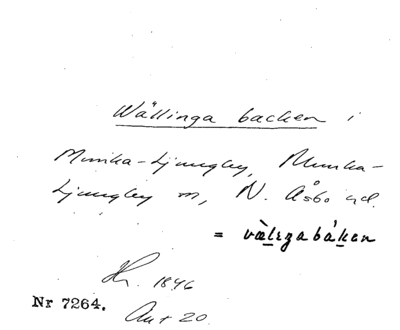 Wällinga backen i
Munka-Ljungby, Munka-
Ljungby sn, N. Åsbo hd.
= vàlıŋabáken
Hr. 1846
Nr 7264.
Ant 20